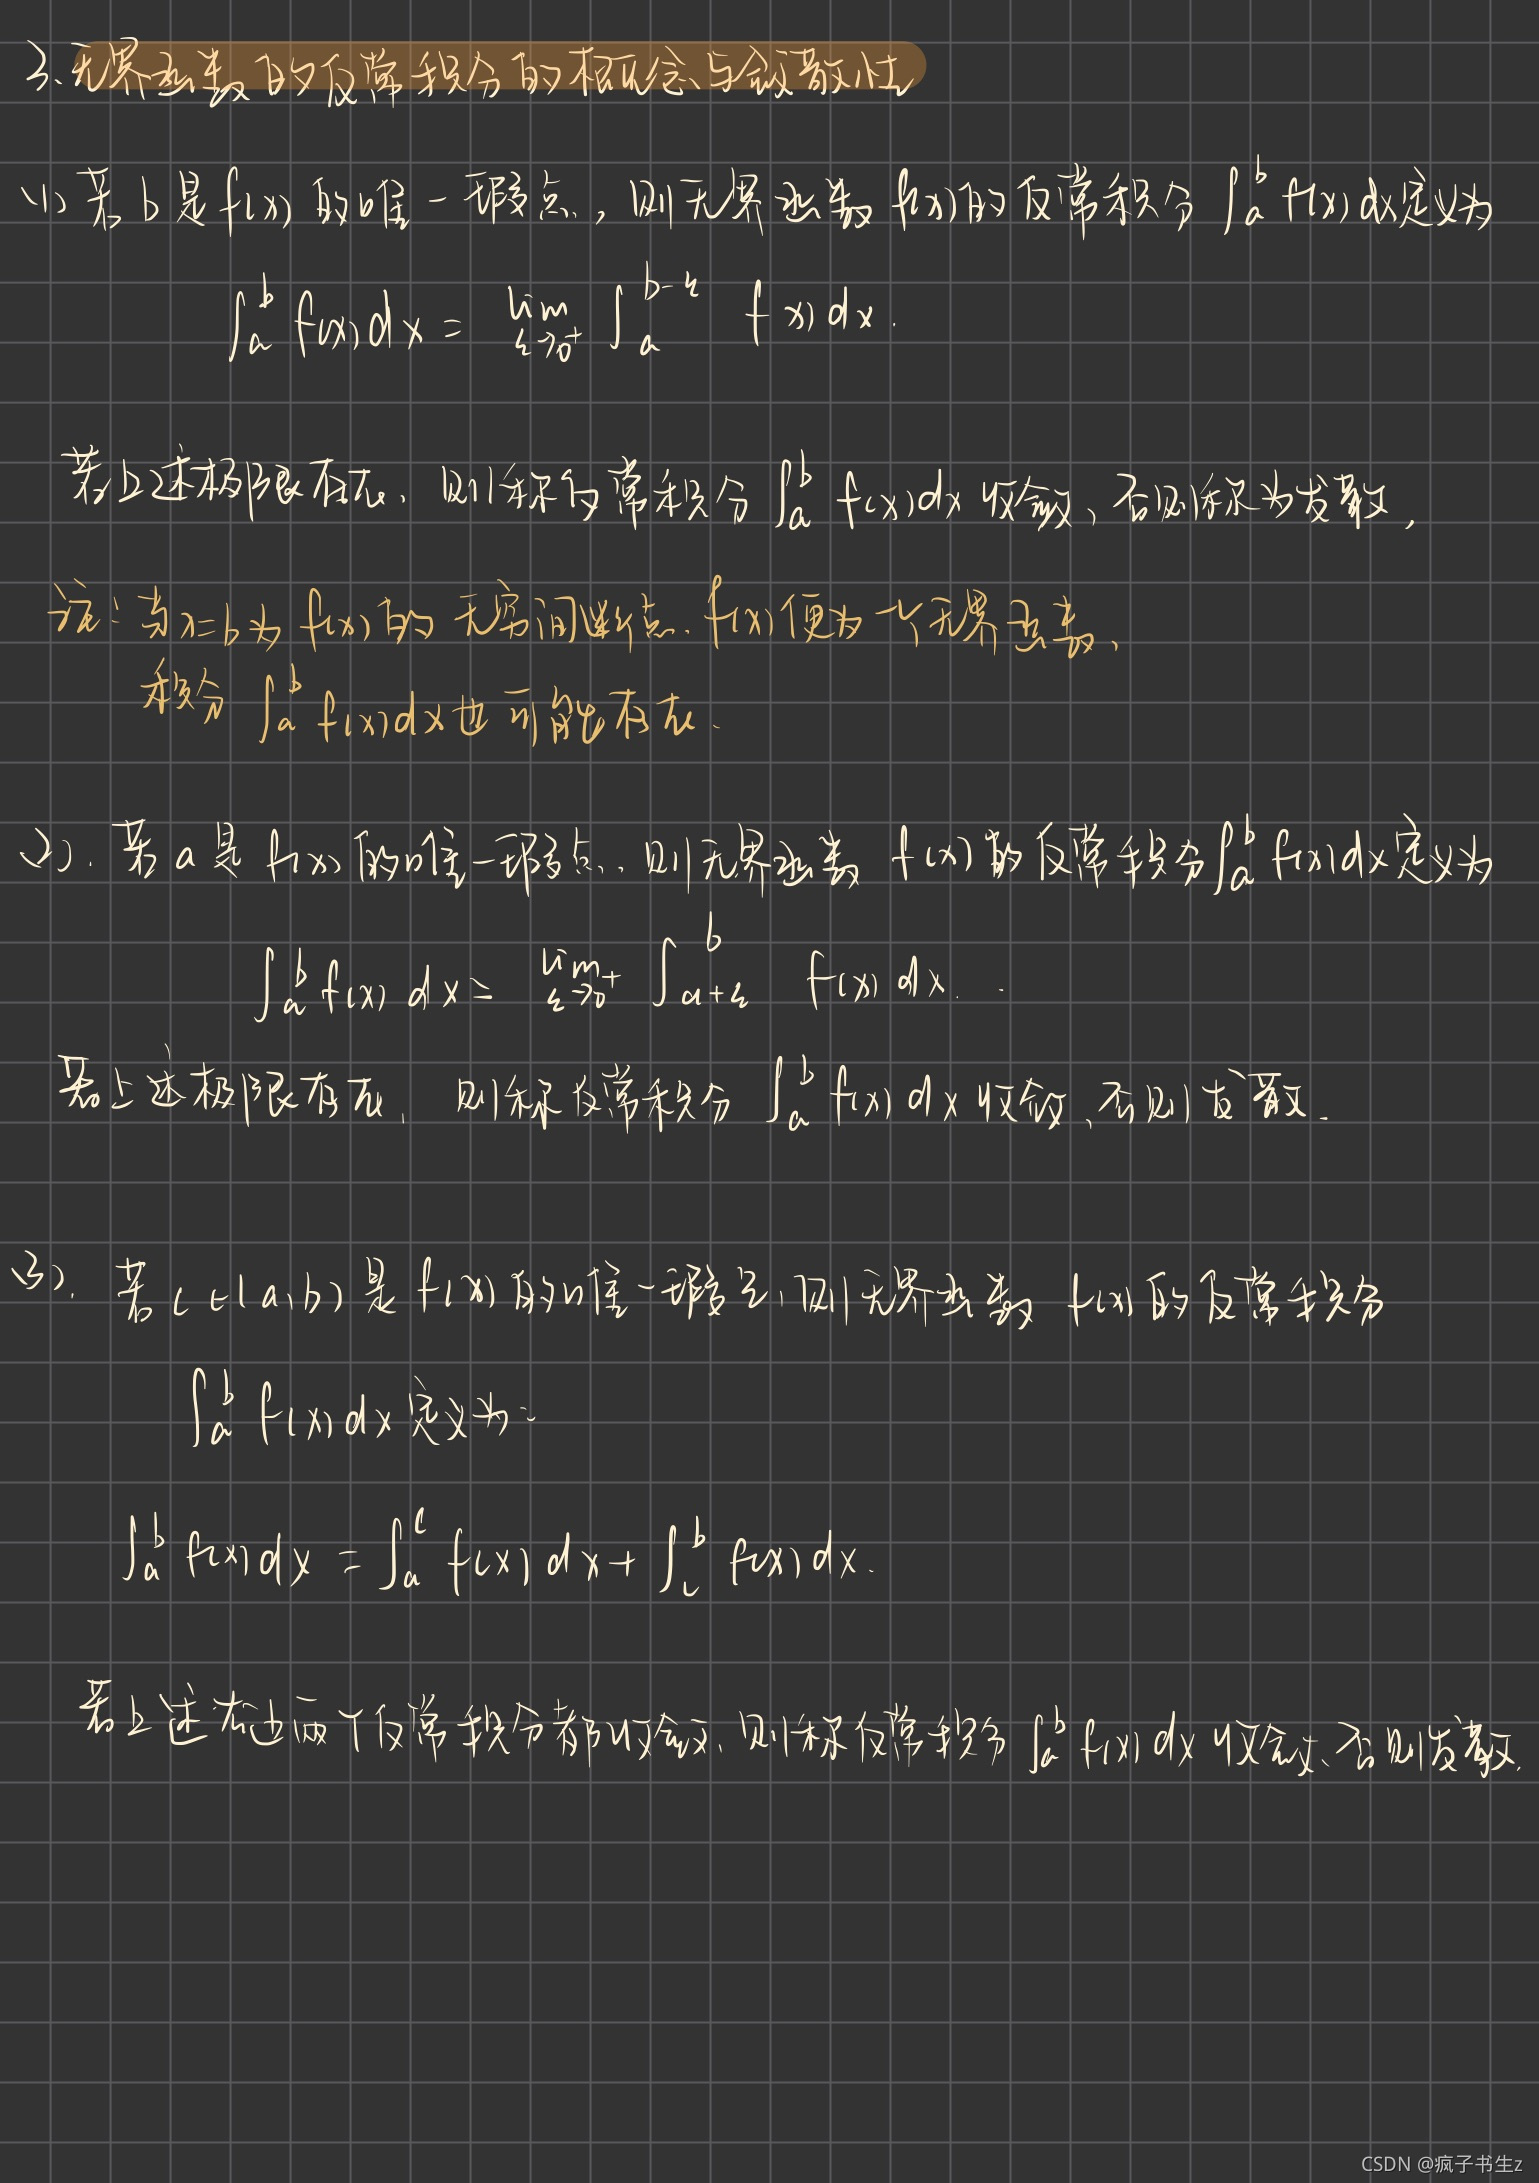 3、无界函数的反常积分的概念与敛散性
(1) 若 b 是 f(x) 的唯一瑕点，则无界函数 f(x)的反常积分 ∫_a^b f(x)dx定义为
∫_a^b f(x)dx = lim_{ε→0⁺} ∫_a^{b-ε} f(x)dx.
若上述极限存在、则称反常积分 ∫_a^b f(x)dx 收敛、否则称为发散，
注：当x=b为 f(x)的 无穷间断点. f(x)便为一个无界函数、
积分 ∫_a^b f(x)dx也可能存在.
(2). 若 a 是 f(x) 的唯一瑕点，则无界函数 f(x)的反常积分∫_a^b f(x)dx定义为
∫_a^b f(x) dx = lim_{ε→0⁺} ∫_{a+ε}^b f(x) dx.
若上述极限存在，则称反常积分 ∫_a^b f(x) dx 收敛、否则发散.
(3). 若c∈(a,b) 是 f(x) 的唯一瑕点，则无界函数 f(x)的反常积分
∫_a^b f(x)dx 定义为：
∫_a^b f(x)dx = ∫_a^c f(x)dx + ∫_c^b f(x)dx.
若上述右边两个反常积分都收敛、则称反常积分 ∫_a^b f(x)dx 收敛、否则发散.
CSDN @疯子书生z